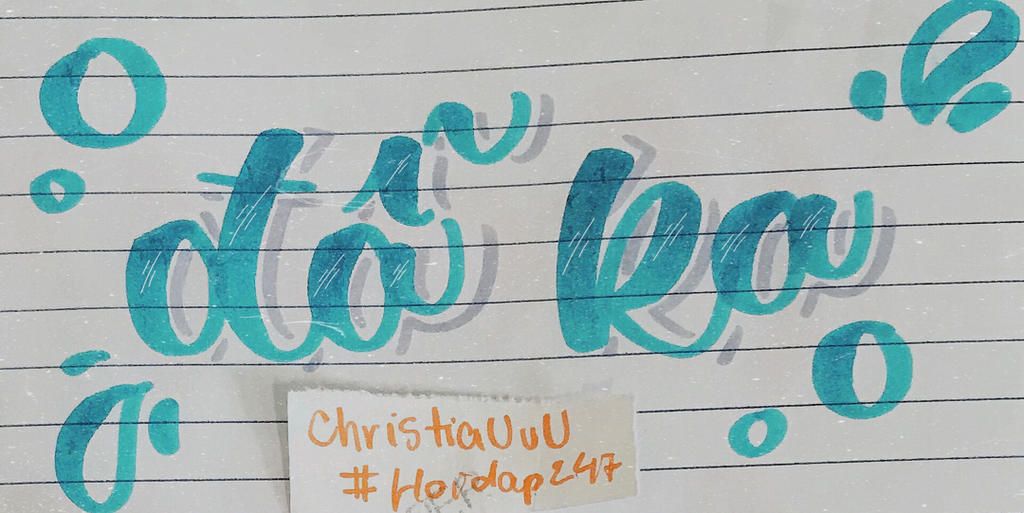 đẫ ka
ChristiaUuU
#Hoidap247